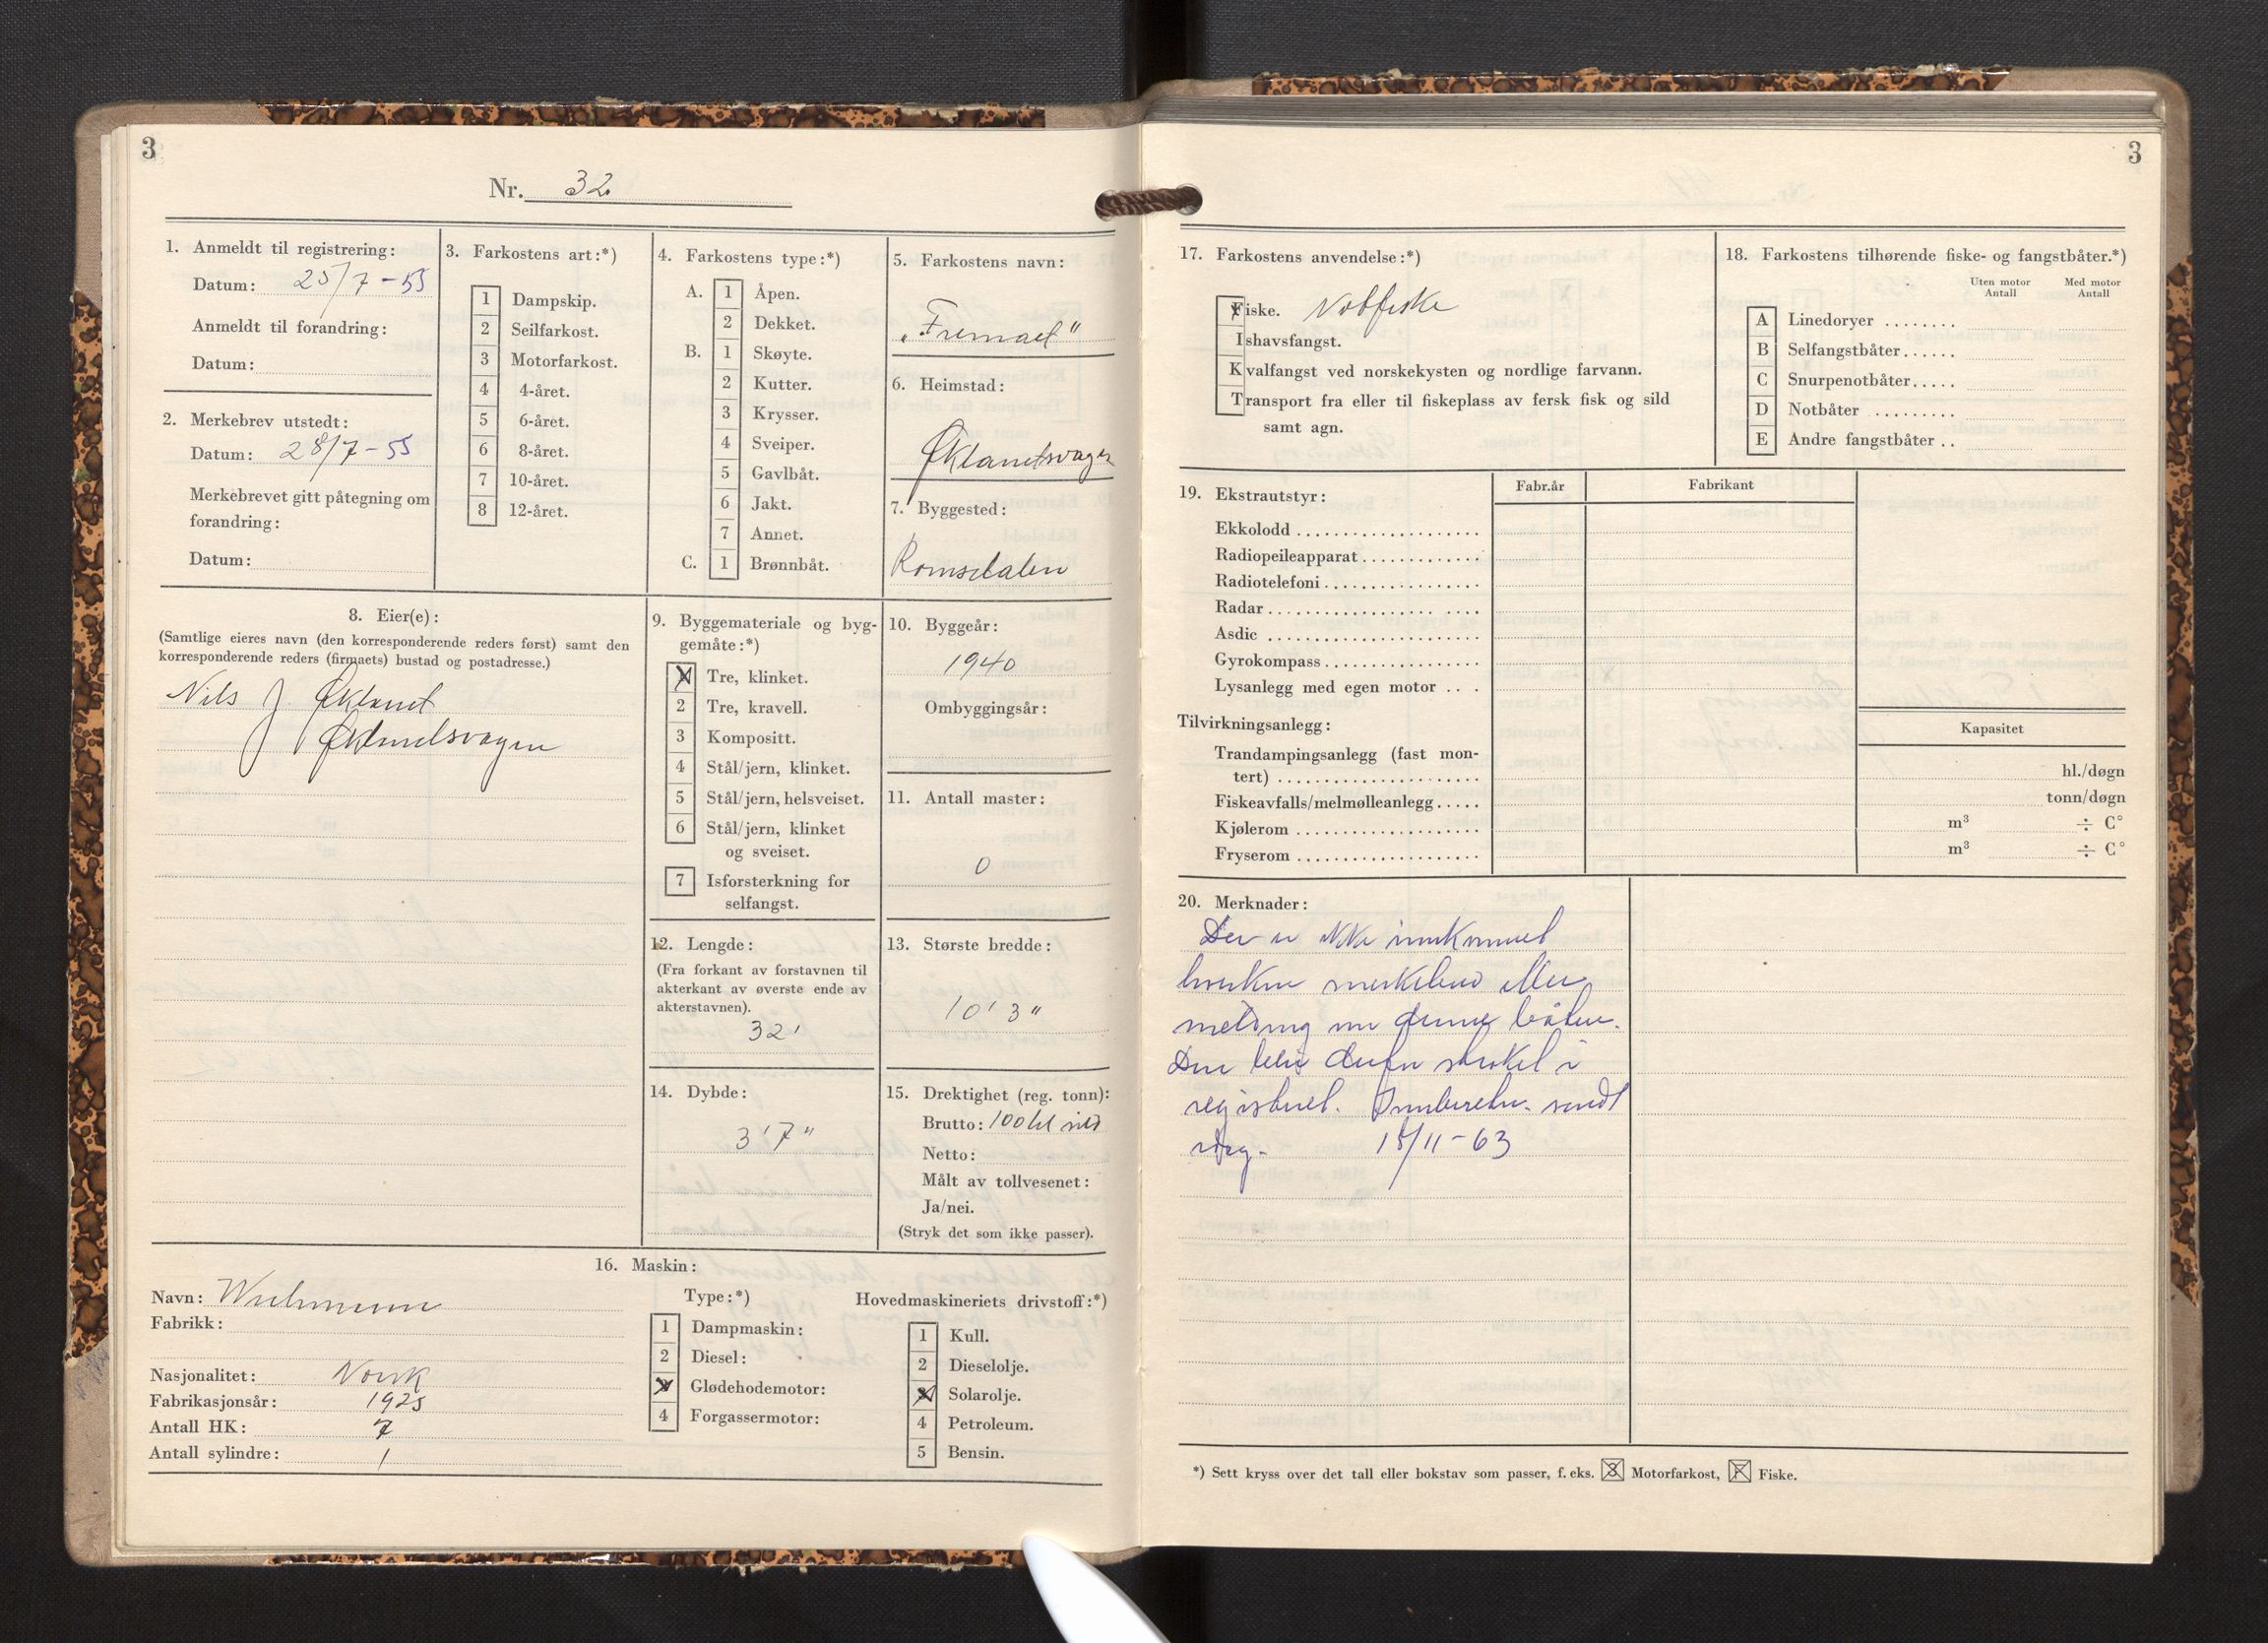 3
Nr. 32
1. Anmeldt til registrering:
Datum: 25/7-55
Anmeldt til forandring:
Datum:
2. Merkebrev utstedt:
Datum: 28/7-55
Merkebrevet gitt påtegning om
forandring:
Datum:
3. Farkostens art:*)
1 Dampskip.
2 Seilfarkost.
3 Motorfarkost.
4 4-året.
5 6-året.
6 8-året.
7 10-året.
8 12-året.
4. Farkostens type:*)
A. 1 Åpen.
2 Dekket.
B. 1 Skøyte.
2 Kutter.
3 Krysser.
4 Sveiper.
5 Gavlbåt.
6 Jakt.
7 Annet.
C. 1 Brønnbåt.
5. Farkostens navn:
6. Heimstad:
Øklandsvågen
7. Byggested:
Romsdalen
8. Eier(e):
(Samtlige eieres navn (den korresponderende reders først) samt den
korresponderende reders (firmaets) bustad og postadresse.)
Nils J. Økland
Øklandsvågen
9. Byggemateriale og byg-
gemåte:*)
Tre, klinket.
2 Tre, kravell.
3 Kompositt.
4 Stål/jern, klinket.
5 Stål/jern, helsveiset.
6 Stål/jern, klinket
og sveiset.
7 Isforsterkning for
selfangst.
10. Byggeår:
1940
Ombyggingsår:
11. Antall master:
0
12. Lengde:
(Fra forkant av forstavnen til
akterkant av øverste ende av
akterstavnen).
32'
13. Største bredde:
10' 3"
14. Dybde:
3' 7"
15. Drektighet (reg. tonn):
Brutto: 100 hl sild
Netto:
Målt av tollvesenet:
Ja/nei.
(Stryk det som ikke passer).
16. Maskin:
Navn: Wichmann
Fabrikk:
Nasjonalitet: Norsk
Fabrikasjonsår: 1925
Antall HK: 7
Antall sylindre: 1
Type:*)
1 Dampmaskin:
2 Diesel:
Glødehodemotor:
4 Forgassermotor:
Hovedmaskineriets drivstoff:*)
1 Kull.
2 Dieselolje.
3 Solarolje.
4 Petroleum.
5 Bensin.
3
17. Farkostens anvendelse:*)
Fiske. Notfiske
Ishavsfangst.
Kvalfangst ved norskekysten og nordlige farvann.
Transport fra eller til fiskeplass av fersk fisk og sild
samt agn.
18. Farkostens tilhørende fiske- og fangstbåter.*)
Uten motor Antall
Med motor Antall
A Linedoryer ........
B Selfangstbåter......
C Snurpenotbåter.....
D Notbåter .........
E Andre fangstbåter ..
19. Ekstrautstyr:
Fabr.år
Fabrikant
Ekkolodd ....................
Radiopeileapparat .............
Radiotelefoni .................
Radar ................. ....
Asdic ........................
Gyrokompass .................
Lysanlegg med egen motor ...
Tilvirkningsanlegg:
Kapasitet
Trandampingsanlegg (fast mon-
tert) ......................
hl./døgn
Fiskeavfalls/melmølleanlegg .....
tonn/døgn
Kjølerom ....................
m³ ÷ C°
Fryserom ....................
m³ ÷ C°
20. Merknader:
Der er ikke innkommet
hverken merkebrev eller
melding om denne båten.
Den blir derfor strøket i
registeret. Innberetn. sendt
idag. 15/11-63
*) Sett kryss over det tall eller bokstav som passer, f. eks. 3 Motorfarkost, F Fiske.